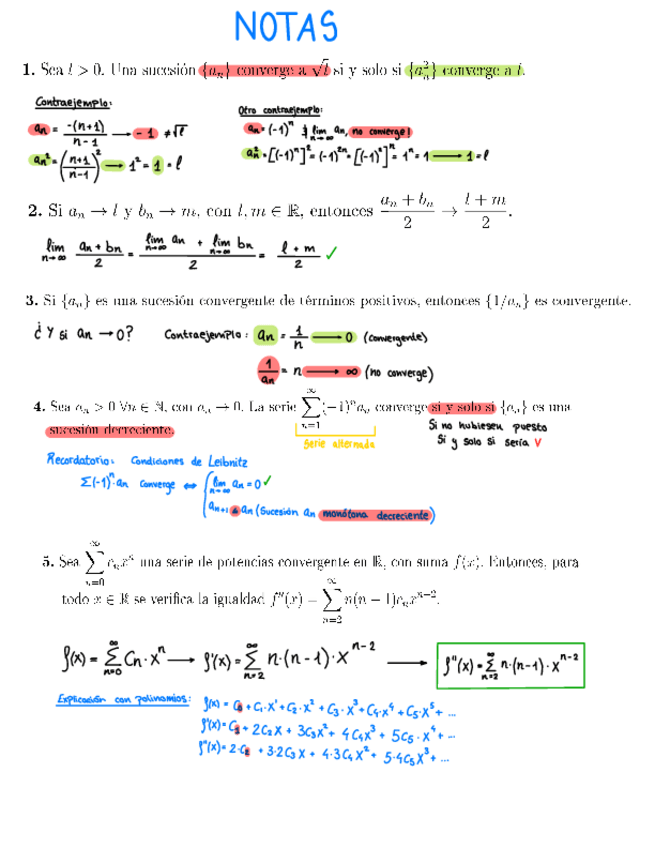 NOTAS
1. Sea l > 0. Una sucesión {aₙ} converge a √l si y solo si {aₙ²} converge a l.
Contraejemplo: Otro contraejemplo:
aₙ = -(n+1)/(n-1) → -1 ≠ √l aₙ = (-1)ⁿ ∄ lim n→∞ aₙ, no converge!
aₙ² = ((n+1)/(n-1))² → 1² = 1 = l aₙ² = [(-1)ⁿ]² = (-1)²ⁿ = [(-1)²]ⁿ = 1ⁿ = 1 → 1 = l
2. Si aₙ → l y bₙ → m, con l, m ∈ ℝ, entonces (aₙ + bₙ)/2 → (l + m)/2.
lim n→∞ (aₙ + bₙ)/2 = (lim n→∞ aₙ + lim n→∞ bₙ)/2 = (l + m)/2 ✓
3. Si {aₙ} es una sucesión convergente de términos positivos, entonces {1/aₙ} es convergente.
¿Y si aₙ → 0? Contraejemplo: aₙ = 1/n → 0 (convergente)
1/aₙ = n → ∞ (no converge)
4. Sea aₙ > 0 ∀n ∈ ℕ, con aₙ → 0. La serie ∑ n=1 ∞ (−1)ⁿaₙ converge si y solo si {aₙ} es una
sucesión decreciente.
Serie alternada
Si no hubiesen puesto
Si y solo si sería V
Recordatorio: Condiciones de Leibnitz
Σ(-1)ⁿ·aₙ converge ⇔ { lim n→∞ aₙ = 0 ✓
aₙ₊₁ ≤ aₙ (Sucesión aₙ monótona decreciente)
5. Sea ∑ n=0 ∞ cₙxⁿ una serie de potencias convergente en ℝ, con suma f(x). Entonces, para
todo x ∈ ℝ se verifica la igualdad f''(x) = ∑ n=2 ∞ n(n − 1)cₙxⁿ⁻².
f(x) = ∑ n=0 ∞ Cₙ·xⁿ → f'(x) = ∑ n=2 ∞ n·(n-1)·xⁿ⁻² → f''(x) = ∑ n=2 ∞ n·(n-1)·xⁿ⁻²
Explicación con polinomios: f(x) = C₀ + C₁·x¹ + C₂·x² + C₃·x³ + C₄·x⁴ + C₅·x⁵ + ...
f'(x) = C₁ + 2C₂x + 3C₃x² + 4C₄x³ + 5C₅·x⁴ + ...
f''(x) = 2·C₂ + 3·2C₃x + 4·3C₄x² + 5·4C₅x³ + ...